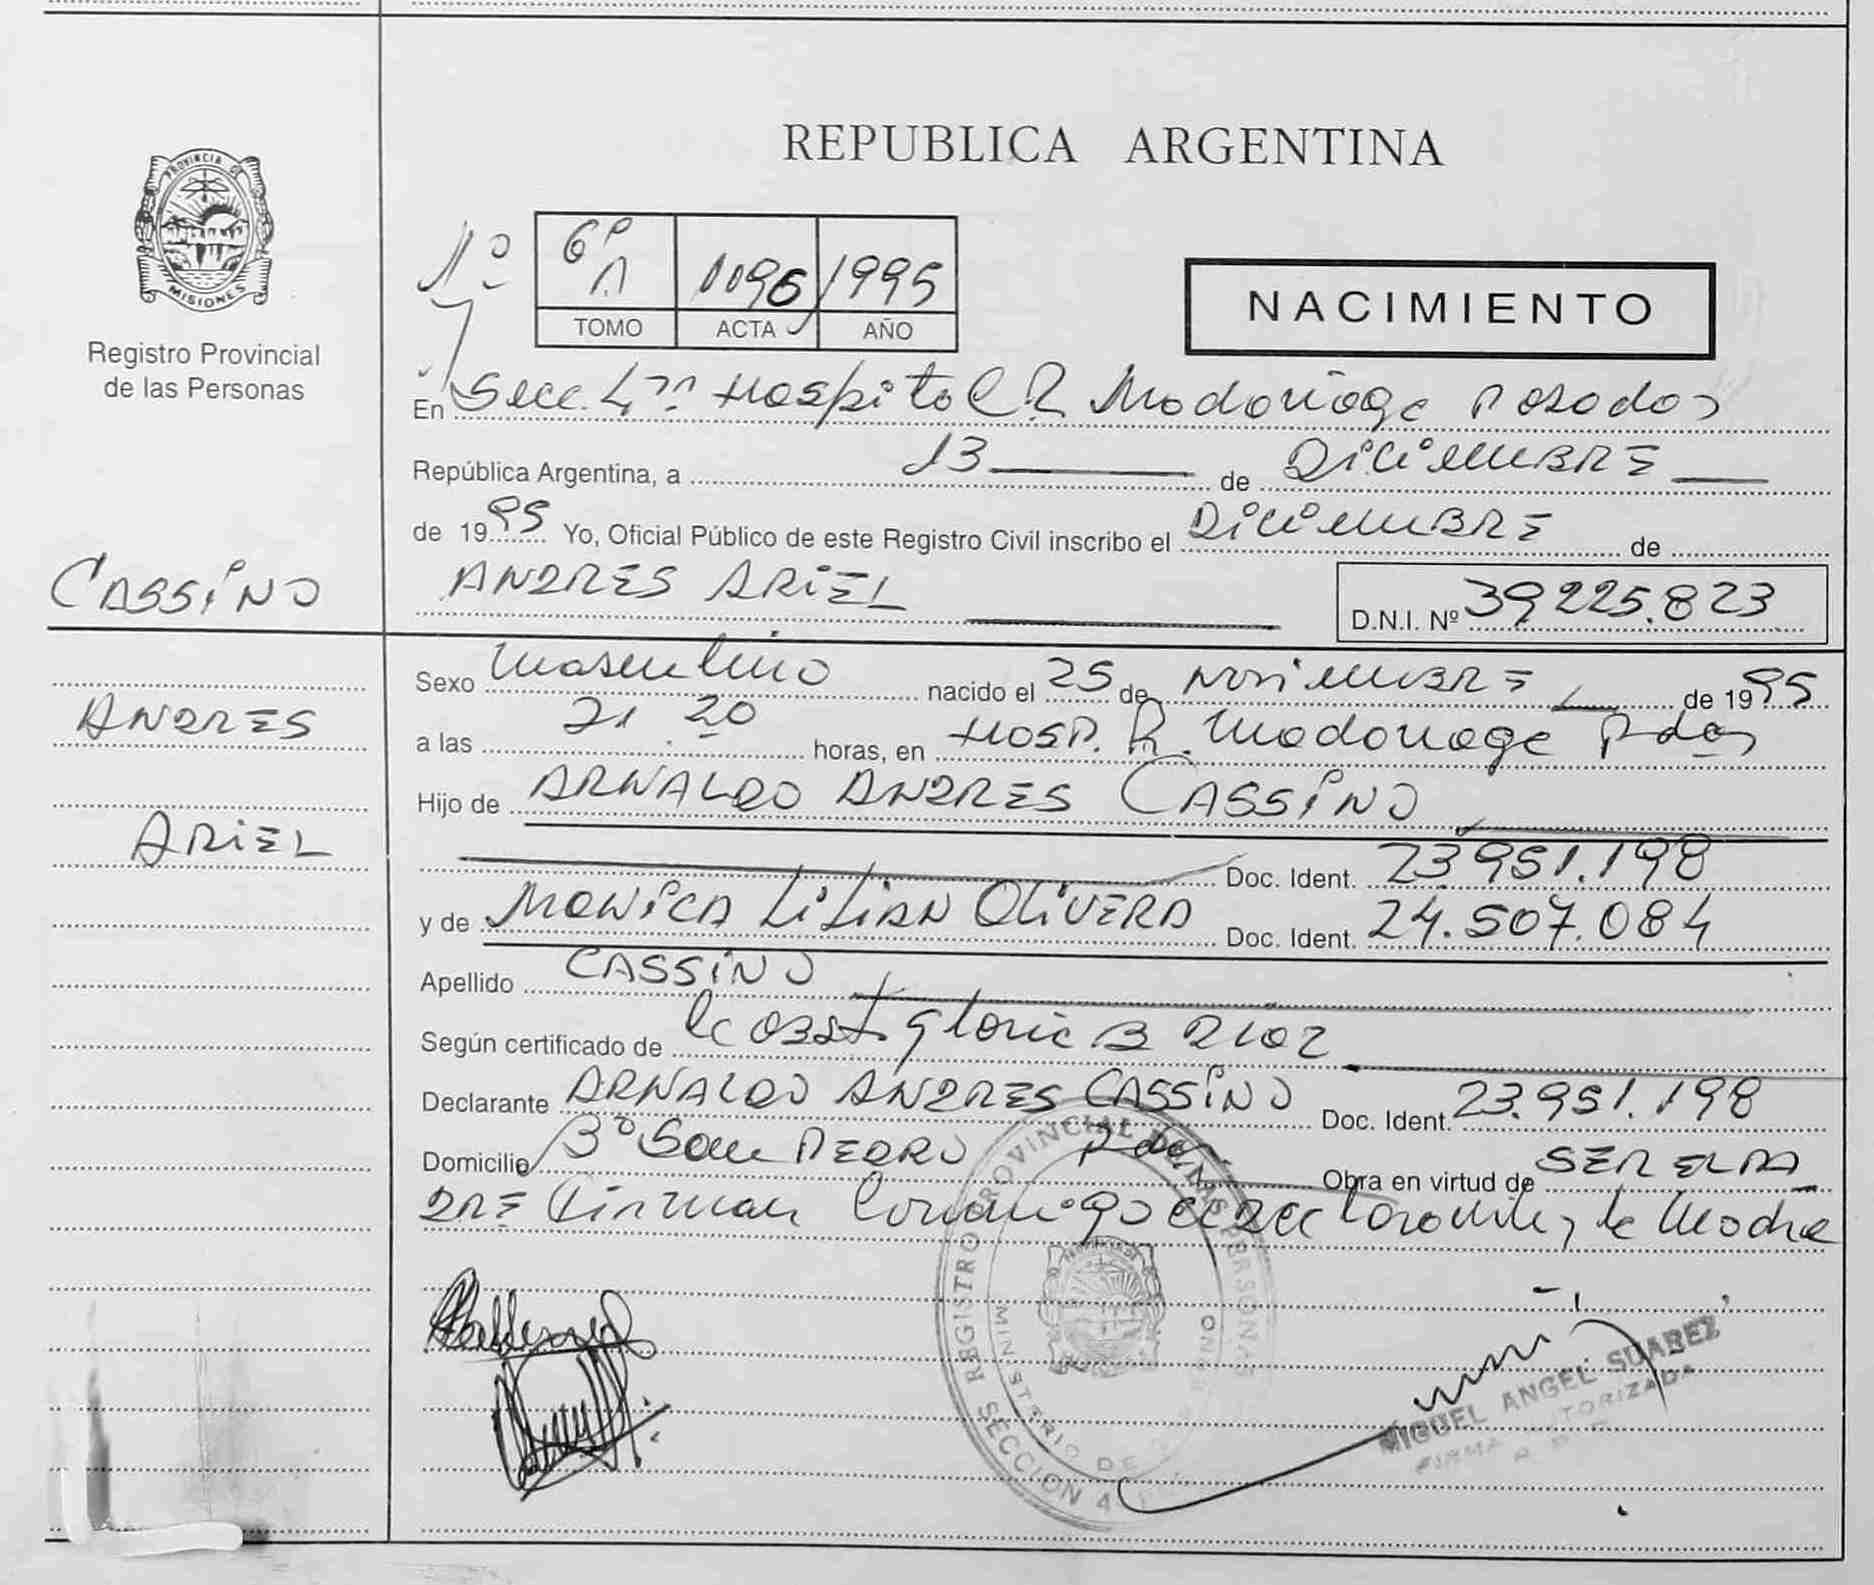 REPUBLICA ARGENTINA
PROVINCIA DE
MISIONES
Registro Provincial
de las Personas
1º
6º A 1096 1995
TOMO ACTA AÑO
NACIMIENTO
En Secc. 4ta Hospital R Madariaga Posadas
República Argentina, a 13 de DiCiEMBRE
de 1995 Yo, Oficial Público de este Registro Civil inscribo el DiCiEMBRE de
CASSiNO
ANDRES ARiEL
D.N.I. Nº 39225.823
Sexo Masculino nacido el 25 de NOViEMBRE de 1995
ANDRES
a las 21.20 horas, en HOSP. R. Madariaga Pdas
Hijo de ARNALDO ANDRES CASSiNO
ARiEL
Doc. Ident. 23951.198
y de MONiCA LiLiAN OLiVERA Doc. Ident. 24.507.084
Apellido CASSiNO
Según certificado de Obst. Gloria B Diaz
Declarante ARNALDO ANDRES CASSiNO Doc. Ident. 23.951.198
Domicilio Bº San PEDRO Pdas. Obra en virtud de SER EL PA
DRE Firman Conmigo el declarante y la Madre
REGISTRO PROVINCIAL DE LAS PERSONAS
MINISTERIO DE
SECCION 4
MIGUEL ANGEL SUAREZ
FIRMA AUTORIZADA